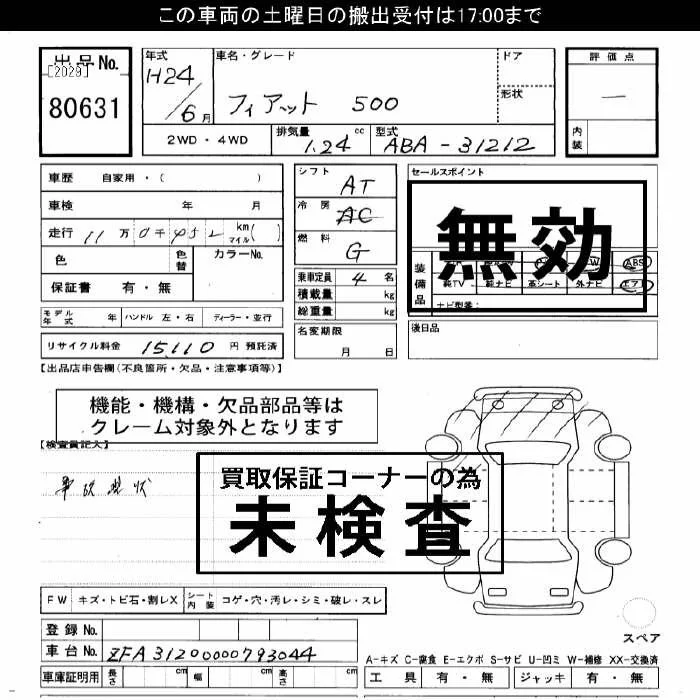 この車両の土曜日の搬出受付は17:00まで
出品No. [2029] 80631
年式 H24/6月
車名・グレード フィアット 500
ドア
形状
評価点 —
内装
2WD・4WD 排気量 1.24 cc 型式 ABA-31212
車歴 自家用・( )
車検 年 月
走行 11万0千452 km マイル( )
色 色替 カラーNo.
保証書 有・無
シフト AT
冷房 AC
燃料 G
乗車定員 4名
積載量 kg
総重量 kg
セールスポイント
無効
装備品 ABS
純TV 純ナビ 革シート 外ナビ エアB
ナビ型番:
モデル年式 年 ハンドル 左・右 ディーラー・並行
名変期限 月 日
後日品
リサイクル料金 15,110 円 預託済
【出品店申告欄(不良箇所・欠品・注意事項等)】
機能・機構・欠品部品等は
クレーム対象外となります
【検査員記入】
買取保証コーナーの為
未検査
事故現状
FW キズ・トビ石・割レX シート内装 コゲ・穴・汚レ・シミ・破レ・スレ
登録No.
車台No. ZFA31200000793044
スペア
A-キズ C-腐食 E-エクボ S-サビ U-凹ミ W-補修 XX-交換済
車庫証明用 長さ cm 幅 cm 高さ cm
工具 有・無 ジャッキ 有・無